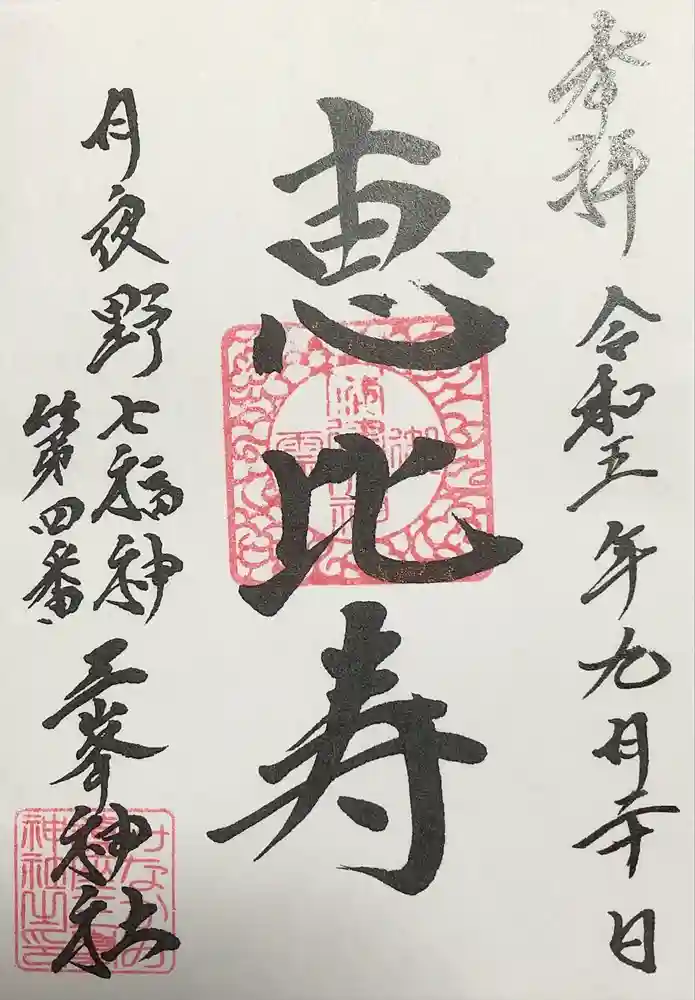 奉拝
令和五年九月二十日
恵比寿
月夜野七福神
第四番
三峯神社
みなかみ
神社之印